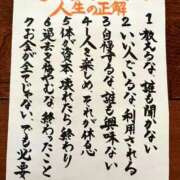 人生の正解
1 教えるな、誰も聞かない
2 いい人でいるな、利用される
3 自慢するな、誰も興味ない
4 1人を楽しめ、それが休息
5 体が資本、壊れたら終わり
6 過去をやむな、終わったこと
7 お金が全てじゃない、でも必要